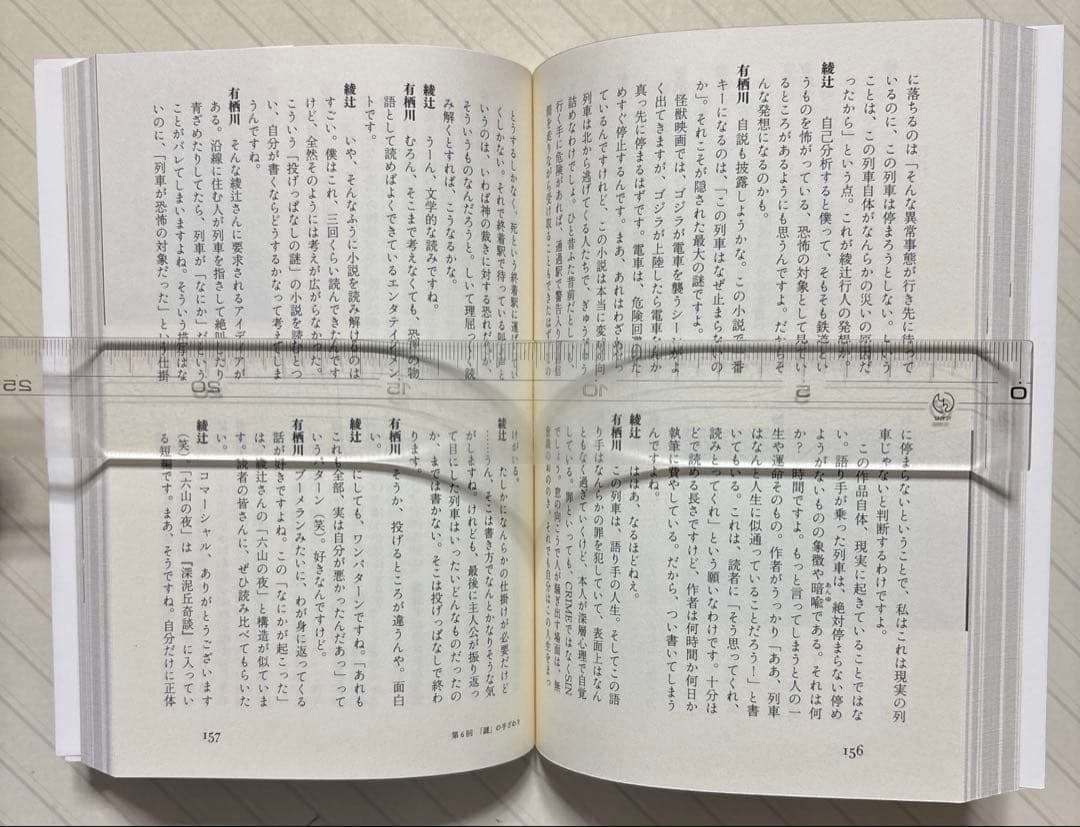 に落ちるのは「そんな異常事態が行き先に待って
いるのに、この列車は停まろうとしない。という
ことは、この列車自体がなんらかの災いの原因だ
ったから」という点。これが綾辻行人の発想か。
綾辻　自己分析すると僕って、そもそも鉄道とい
うものを怖がっている、恐怖の対象として見てい
るところがあるようにも思うんですよ。だからそ
んな発想になるのかも。
有栖川　自説も披露しようかな。この小説で一番
キーになるのは、「この列車はなぜ止まらないの
か」。それこそが隠された最大の謎ですよ。
怪獣映画では、ゴジラが電車を襲うシーンがよ
く出てきますが、ゴジラが上陸したら電車なんか
真っ先に停まるはずです。電車は、危険回避のた
めすぐ停止するんです。まあ、あれはわざとやっ
ているんですけれど、この小説は本当に変。
列車は北から逃げてくる人たちで、ぎゅうぎゅう
詰めなわけでしょ。ひと昔ふた昔前だとしても、
行く手に危険があれば、通過駅で警告入りの通信
筒を走りながら受け取ることもできたはず
に停まらないということで、私はこれは現実の列
車じゃないと判断するわけですよ。
この作品自体、現実に起きていることではな
い。語り手が乗った列車は、絶対停まらない停め
ようがないものの象徴や暗喩である。それは何
か？　時間ですよ。もっと言ってしまうと人の一
生や運命そのもの。作者がうっかり「ああ、列車
はなんと人生に似通っていることだろう！」と書
いてもいる。これは、読者に「そう思ってくれ、
読みとってくれ」という願いなわけです。十分ほ
どで読める長さですけど、作者は何時間か何日か
執筆に費やしている。だから、つい書いてしまう
んですよね。
綾辻　ははあ、なるほどねえ。
有栖川　この列車は、語り手の人生。そしてこの語
り手はなんらかの罪を犯していて、表面上はなん
ともなく過ぎていくけど、本人が深層心理で自覚
している。罪といっても、CRIMEではなくSIN
でしょう。窓の向こうで人が騒ぎ出す場面は、無
156
とうするしかなく、死という終着駅に運ばれてい
くしかない。それで終着駅で待っている
いうのは、いわば神の裁きに対する恐れだ
そういうものなんだろうと。しいて理屈っぽく読
み解くとすれば、こうなるかな。
綾辻　うーん、文学的な読みですね。
有栖川　むろん、そこまで考えなくても、恐怖の物
語として読めばよくできているエンタテインメン
トです。
綾辻　いや、そんなふうに小説を読み解けるのは
すごい。僕はこれ、三回くらい読んできたんです
けど、全然そのようには考えが広がらなかった。
こういう「投げっぱなしの謎」の小説を読むとつ
い、自分が書くならどうするかなって考えてしま
うんですね。
有栖川　そんな綾辻さんに要求されるアイディアが
ある。沿線に住む人が列車を指さして絶叫したり
青ざめたりしてたら、列車が「なにか」だという
ことがバレてしまいますよね。そういう描写はな
いのに、「列車が恐怖の対象だった」という仕掛
けがいる。
綾辻　たしかになんらかの仕掛けが必要だけど
……うん、そこは書き方でなんとかなりそうな気
がしますね。けれども、最後に主人公が振り返っ
て目にした列車はいったいどんなものだったの
か、までは書かない。そこは投げっぱなしで終わ
ります。
有栖川　そうか、投げるところが違うんや。面白
い。
綾辻　にしても、ワンパターンですね。「あれも
これも全部、実は自分が悪かったんだあっ」って
いうパターン（笑）。好きなんですけど。
有栖川　ブーメランみたいに、わが身に返ってくる
話が好きですよね。この「なにかが起こった」
は、綾辻さんの「六山の夜」と構造が似ていま
す。読者の皆さんに、ぜひ読み比べてもらいた
い。
綾辻　コマーシャル、ありがとうございます
（笑）。「六山の夜」は『深泥丘奇談』に入ってい
る短編です。まあ、そうですね。自分だけに正体
第6回　「謎」の手ざわり
157
0
5
10
15
20
25